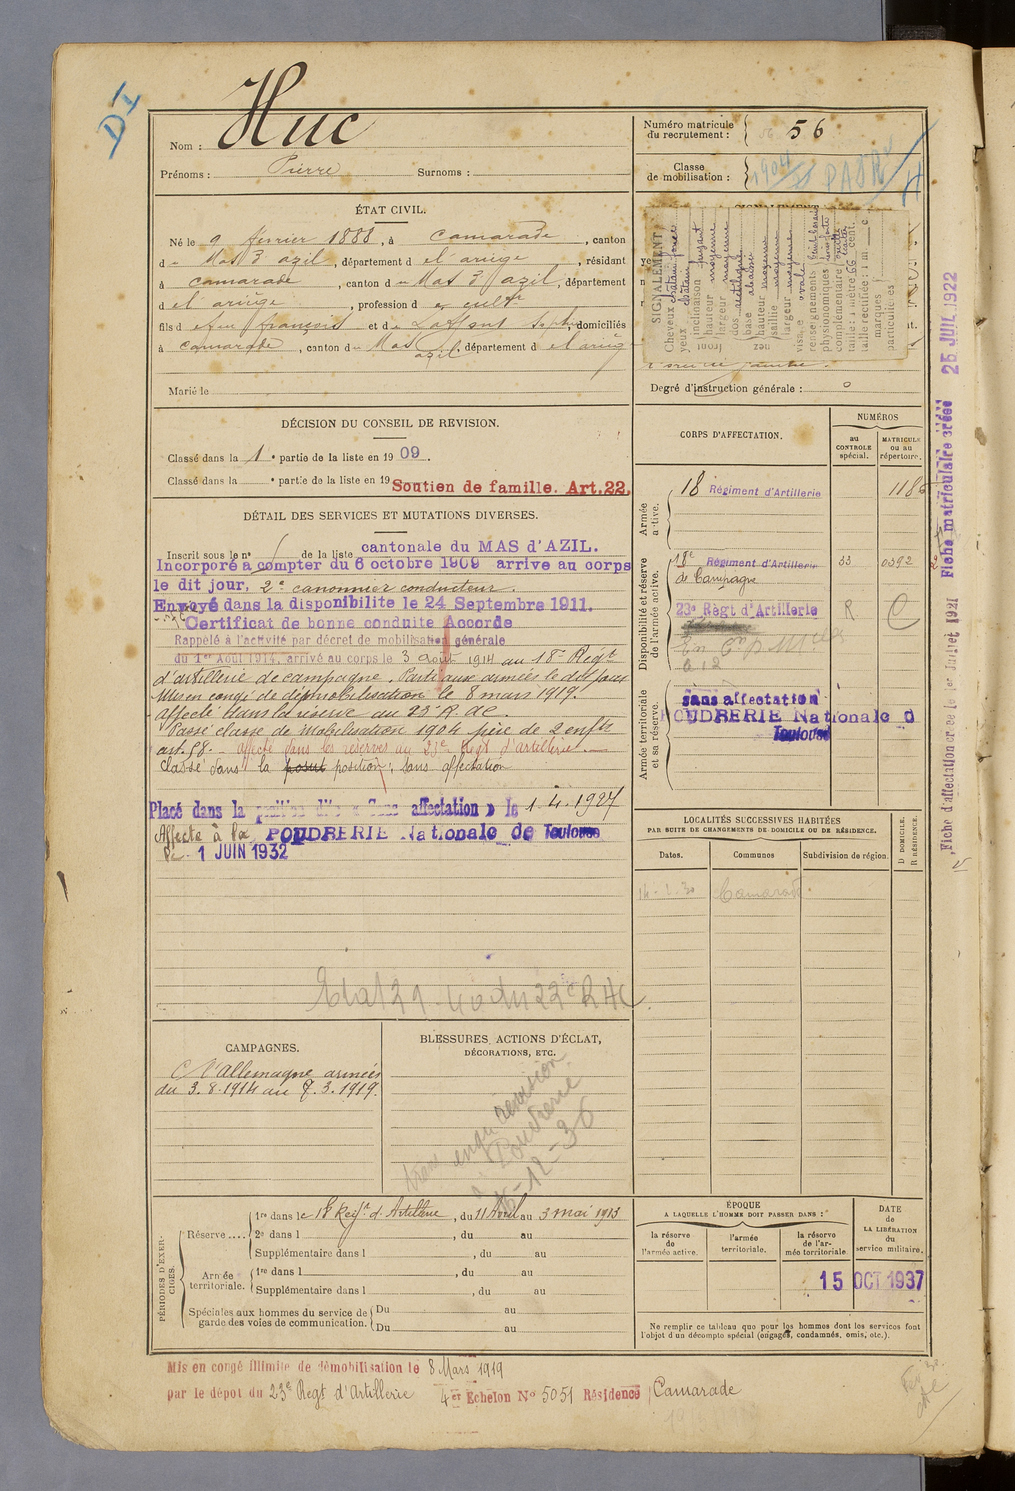 D I
Nom : Huc
Prénoms : Pierre Surnoms :
Numéro matricule du recrutement : 56
Classe de mobilisation : 1904
ÉTAT CIVIL.
Né le 9 février 1888, à Camarade, canton
d Mas d'azil, département d el ariège, résidant
à camarade, canton d Mas d'azil, département
d el ariège, profession d cultr
fils d feu françois et d Lafont, domiciliés
à camarade, canton d Mas d'azil, département d el ariège
Marié le
SIGNALEMENT
Cheveux châtain foncé
yeux châtain
front inclinaison fuyant
hauteur moyenne
largeur moyenne
nez dos rectiligne
base abaissée
hauteur moyenne
saillie moyenne
largeur moyenne
visage ovale
renseignements
physionomiques
complémentaires
taille : 1 mètre 66 cent.
taille rectifiée : 1 m. c
marques
particulières
Degré d'instruction générale : 0
DÉCISION DU CONSEIL DE REVISION.
Classé dans la 1e partie de la liste en 1909.
Classé dans la e partie de la liste en 19
Soutien de famille. Art.22.
CORPS D'AFFECTATION.
NUMÉROS
au CONTROLE spécial.
MATRICULE ou au répertoire.
Armée active.
18 Régiment d'Artillerie 1186
Disponibilité et réserve de l'armée active.
18e Régiment d'Artillerie 33 0392
de Campagne
23e Régt d'Artillerie R C
Armée territoriale et sa réserve.
sans affectation
POUDRERIE Nationale d
Toulouse
DÉTAIL DES SERVICES ET MUTATIONS DIVERSES.
Inscrit sous le n° de la liste cantonale du MAS d'AZIL.
Incorporé a compter du 6 octobre 1909 arrive au corps
le dit jour, 2e canonnier conducteur.
Envoyé dans la disponibilite le 24 Septembre 1911.
Certificat de bonne conduite Accorde
Rappelé à l'activité par décret de mobilisation générale
du 1er Août 1914, arrivé au corps le 3 août 1914 au 18e Régt
d'artillerie de campagne. Parti aux armées le dit jour
Mis en congé de démobilisation le 8 mars 1919.
Affecté dans la réserve au 23e R. ac.
Passé classe de Mobilisation 1904 père de 2 enfts
art. 58. - affecté dans les réserves au 23e Regt d'artillerie.
Classé dans la posit position, sans affectation
Placé dans la position dite « Sans affectation » le 1.4.1927
Affecte à la POUDRERIE Nationale de Toulouse
le 1 JUIN 1932
LOCALITÉS SUCCESSIVES HABITÉES
PAR SUITE DE CHANGEMENTS DE DOMICILE OU DE RÉSIDENCE.
Dates. Communes Subdivision de région. D DOMICILE. R RÉSIDENCE.
Camarade
CAMPAGNES.
C/ l'Allemagne armées
du 3.8.1914 au 7.3.1919.
BLESSURES, ACTIONS D'ÉCLAT,
DÉCORATIONS, ETC.
Poudrerie
16-12-36
PÉRIODES D'EXERCICES.
Réserve .... 1re dans le 18 Regt d'Artillerie, du 11 Avril au 3 mai 1913
2e dans l , du au
Supplémentaire dans l , du au
Armée territoriale. 1re dans l , du au
Supplémentaire dans l , du au
Spéciales aux hommes du service de garde des voies de communication. Du au
Du au
ÉPOQUE
A LAQUELLE L'HOMME DOIT PASSER DANS :
la réserve de l'armée active.
l'armée territoriale.
la réserve de l'armée territoriale.
DATE de LA LIBÉRATION du service militaire.
15 OCT 1937
Ne remplir ce tableau que pour les hommes dont les services font
l'objet d'un décompte spécial (engagés, condamnés, omis, etc.).
Mis en congé illimité de démobilisation le 8 Mars 1919
par le dépôt du 23e Regt d'Artillerie 4e Echelon N° 5051 Résidence Camarade
Fiche d'affectation créée le 1er Juillet 1921 Fiche matriculaire créée 25 JUIL 1922